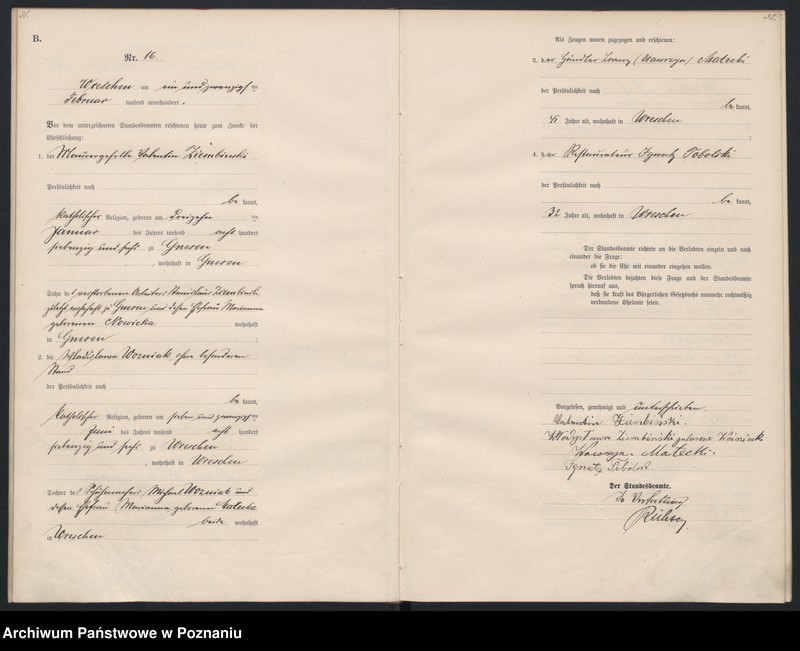 31.
B.
Nr. 16.
Wreschen am ein und zwanzigsten
Februar tausend neunhundert.
Vor dem unterzeichneten Standesbeamten erschienen heute zum Zwecke der
Eheschließung:
1. der Maurergeselle Valentin Ziembinski
Persönlichkeit nach
be kannt,
katholischer Religion, geboren am dreizehnten
Januar des Jahres tausend acht hundert
siebenzig und sechs zu Gnesen
, wohnhaft in Gnesen
Sohn des verstorbenen Arbeiters Stanislaus Ziembinski,
zuletzt wohnhaft zu Gnesen und dessen Ehefrau Marianna
geborenen Nowicka wohnhaft
in Gnesen ;
2. die Wladislawa Wozniak, ohne besonderen
Stand
der Persönlichkeit nach
be kannt,
katholischer Religion, geboren am sieben und zwanzigsten
Juni des Jahres tausend acht hundert
siebenzig und sechs zu Wreschen
, wohnhaft in Wreschen
Tochter des Schuhmachers Michael Wozniak und
dessen Ehefrau Marianna geborenen
beide wohnhaft
in Wreschen
32.
Als Zeugen waren zugezogen und erschienen:
3. der Händler Lorenz (Wawrzyn) Malecki
der Persönlichkeit nach
be kannt,
41 Jahre alt, wohnhaft in Wreschen
;
4. der Restaurateur Ignatz Tobolski
der Persönlichkeit nach
be kannt,
32 Jahre alt, wohnhaft in Wreschen
Der Standesbeamte richtete an die Verlobten einzeln und nach
einander die Frage:
ob sie die Ehe mit einander eingehen wollen.
Die Verlobten bejahten diese Frage und der Standesbeamte
sprach hierauf aus,
daß sie kraft des Bürgerlichen Gesetzbuchs nunmehr rechtmäßig
verbundene Eheleute seien.
Vorgelesen, genehmigt und unterschrieben.
Valentin Ziembiński.
Ziembinski geborene Wózniak
Malecki.
Ignatz Tobolski.
Der Standesbeamte.
In Vertretung
Archiwum Państwowe w Poznaniu